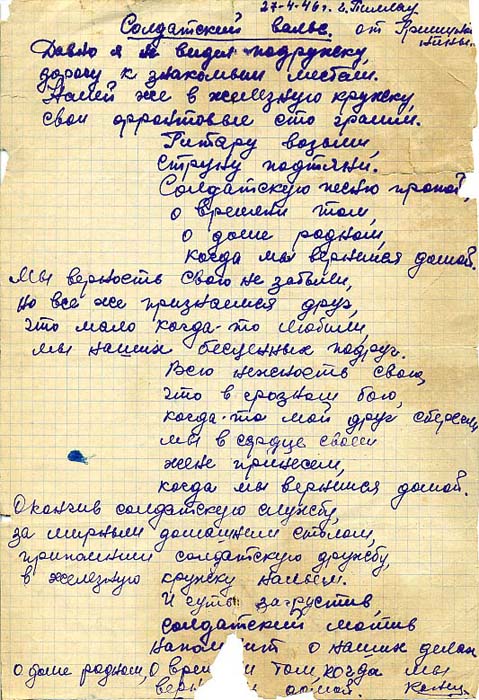 27-4-46г. г. Пиллау
Солдатский вальс. от Пришут
нины.
Давно я не видел подружку,
дорогу к знакомым местам.
Налей же в железную кружку,
свои фронтовые сто грамм.
Гитару возьми,
струну подтяни.
Солдатскую песню пропой,
о времени том,
о доме родном,
когда мы вернемся домой.
Мы верность свою не забыли,
но все же признаемся друг,
что мало когда-то любили,
мы наших бесценных подруг.
Всю нежность свою,
что в грозном бою,
когда-то мой друг сберегли
мы в сердце своем
жене принесем,
когда мы вернемся домой.
Окончив солдатскую службу,
за мирным домашнем столом,
припомним солдатскую дружбу,
в железную кружку нальем.
И чуть загрустив,
солдатский мотив
напомнит о наших делах
о доме родном, о времени том, когда мы
вернемся домой. Конец